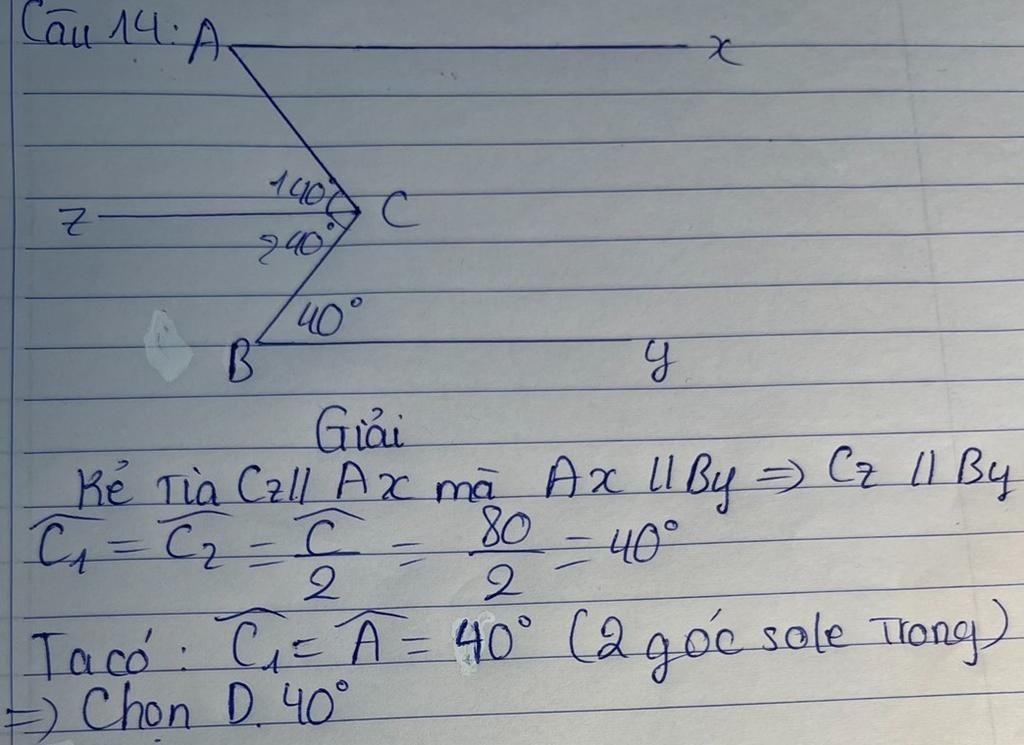 Câu 14: A x
140°
z C
240°
40°
B y
Giải
Kẻ Tia Cz // Ax mà Ax // By => Cz // By
Ĉ₁ = Ĉ₂ = Ĉ/2 = 80/2 = 40°
Ta có: Ĉ₁ = Â = 40° (2 góc sole Trong)
=> Chọn D. 40°